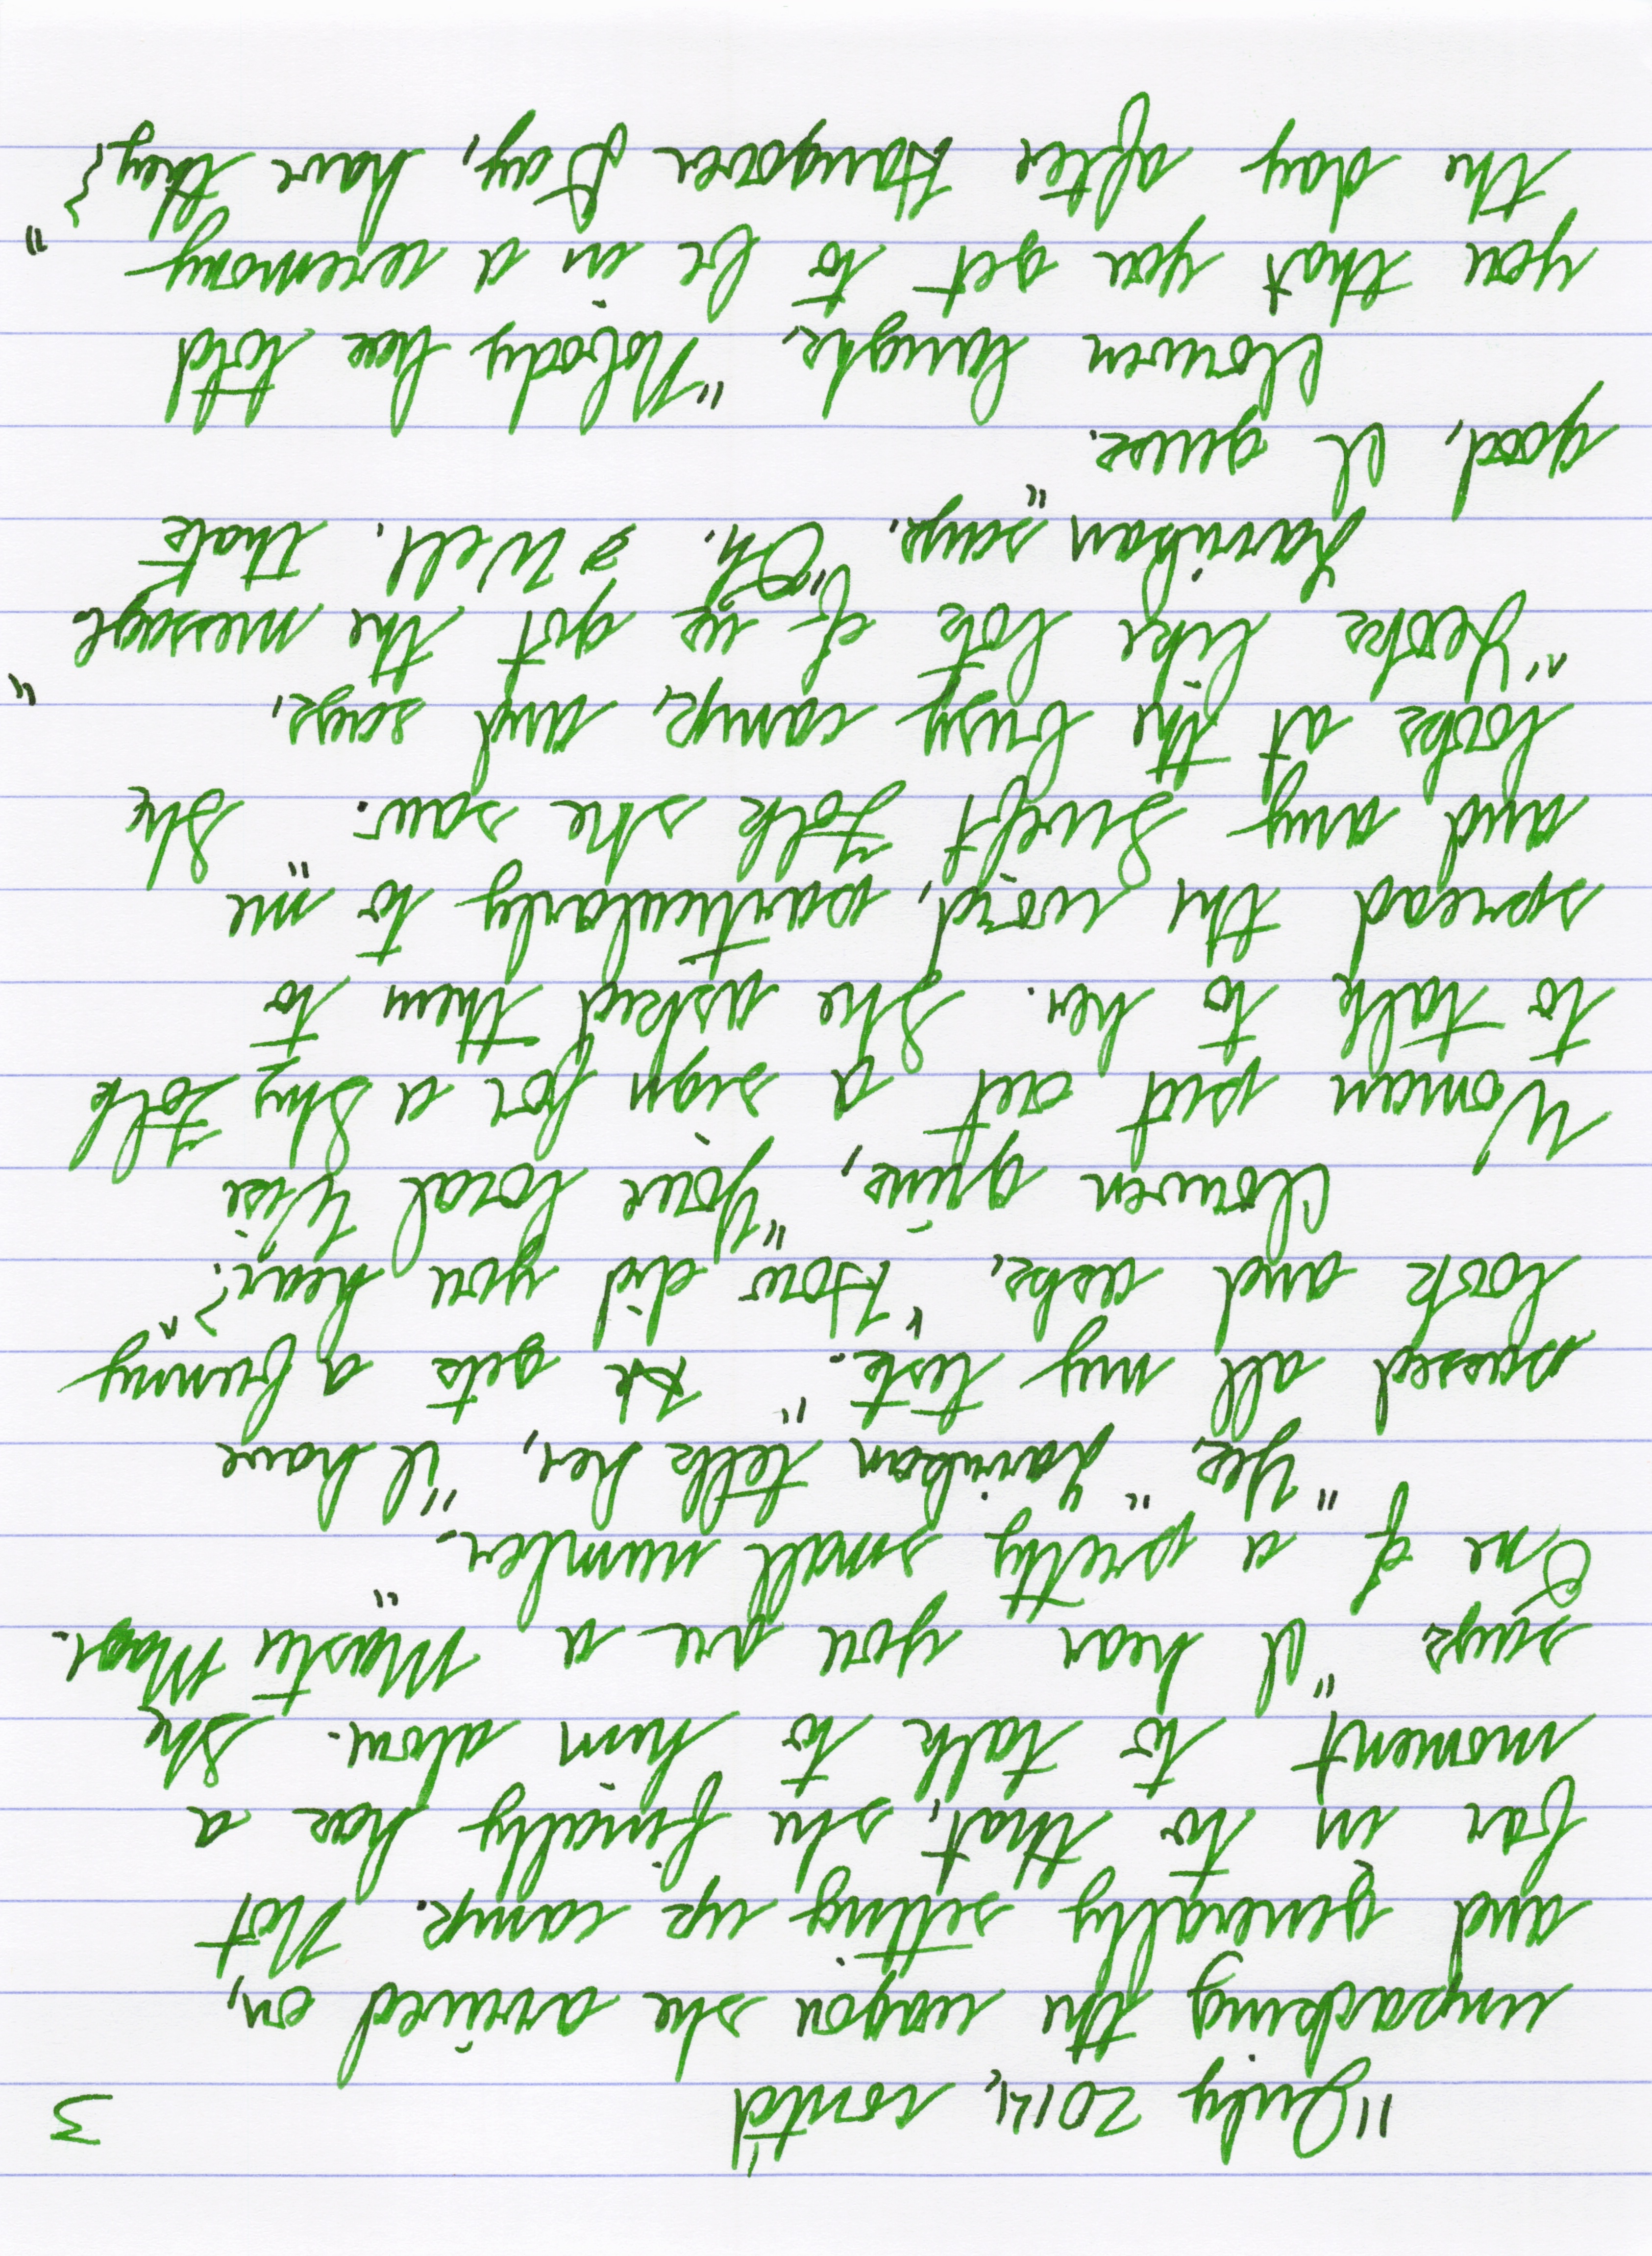 "July 2014, cont'd 3
unpacking the wagon she arrived on,
and generally setting up camp. Not
far in to that, she finally has a
moment to talk to him alone. She
says "I hear you are a Master Mage.
One of a pretty small number."
"Yes," Harrikan tells her, "I have
passed all my tests." He gets a funny
look and asks, "How did you hear?"
Clouwen grins, "Your local Wise
Woman put out a sign for a Shy Folk
to talk to her. She asked them to
spread the word, particularly to me
and any Swift Folk she saw." She
looks at the busy camp, and says,
"Looks like lots of us got the message."
Harrikan says, "Oh. Well, that's
good, I guess."
Clouwen laughs, "Nobody has told
you that you get to be in a ceremony
the day after Hangover Day, have they?"